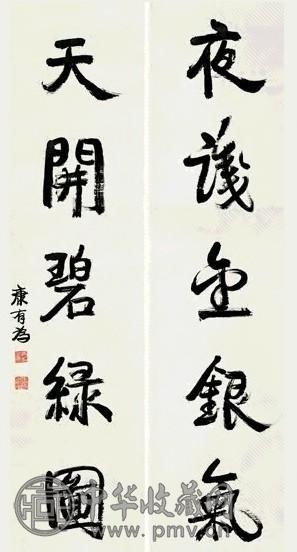 夜識金銀氣
天開碧綠圖
康有為
中华收藏网
www.pmv.cn